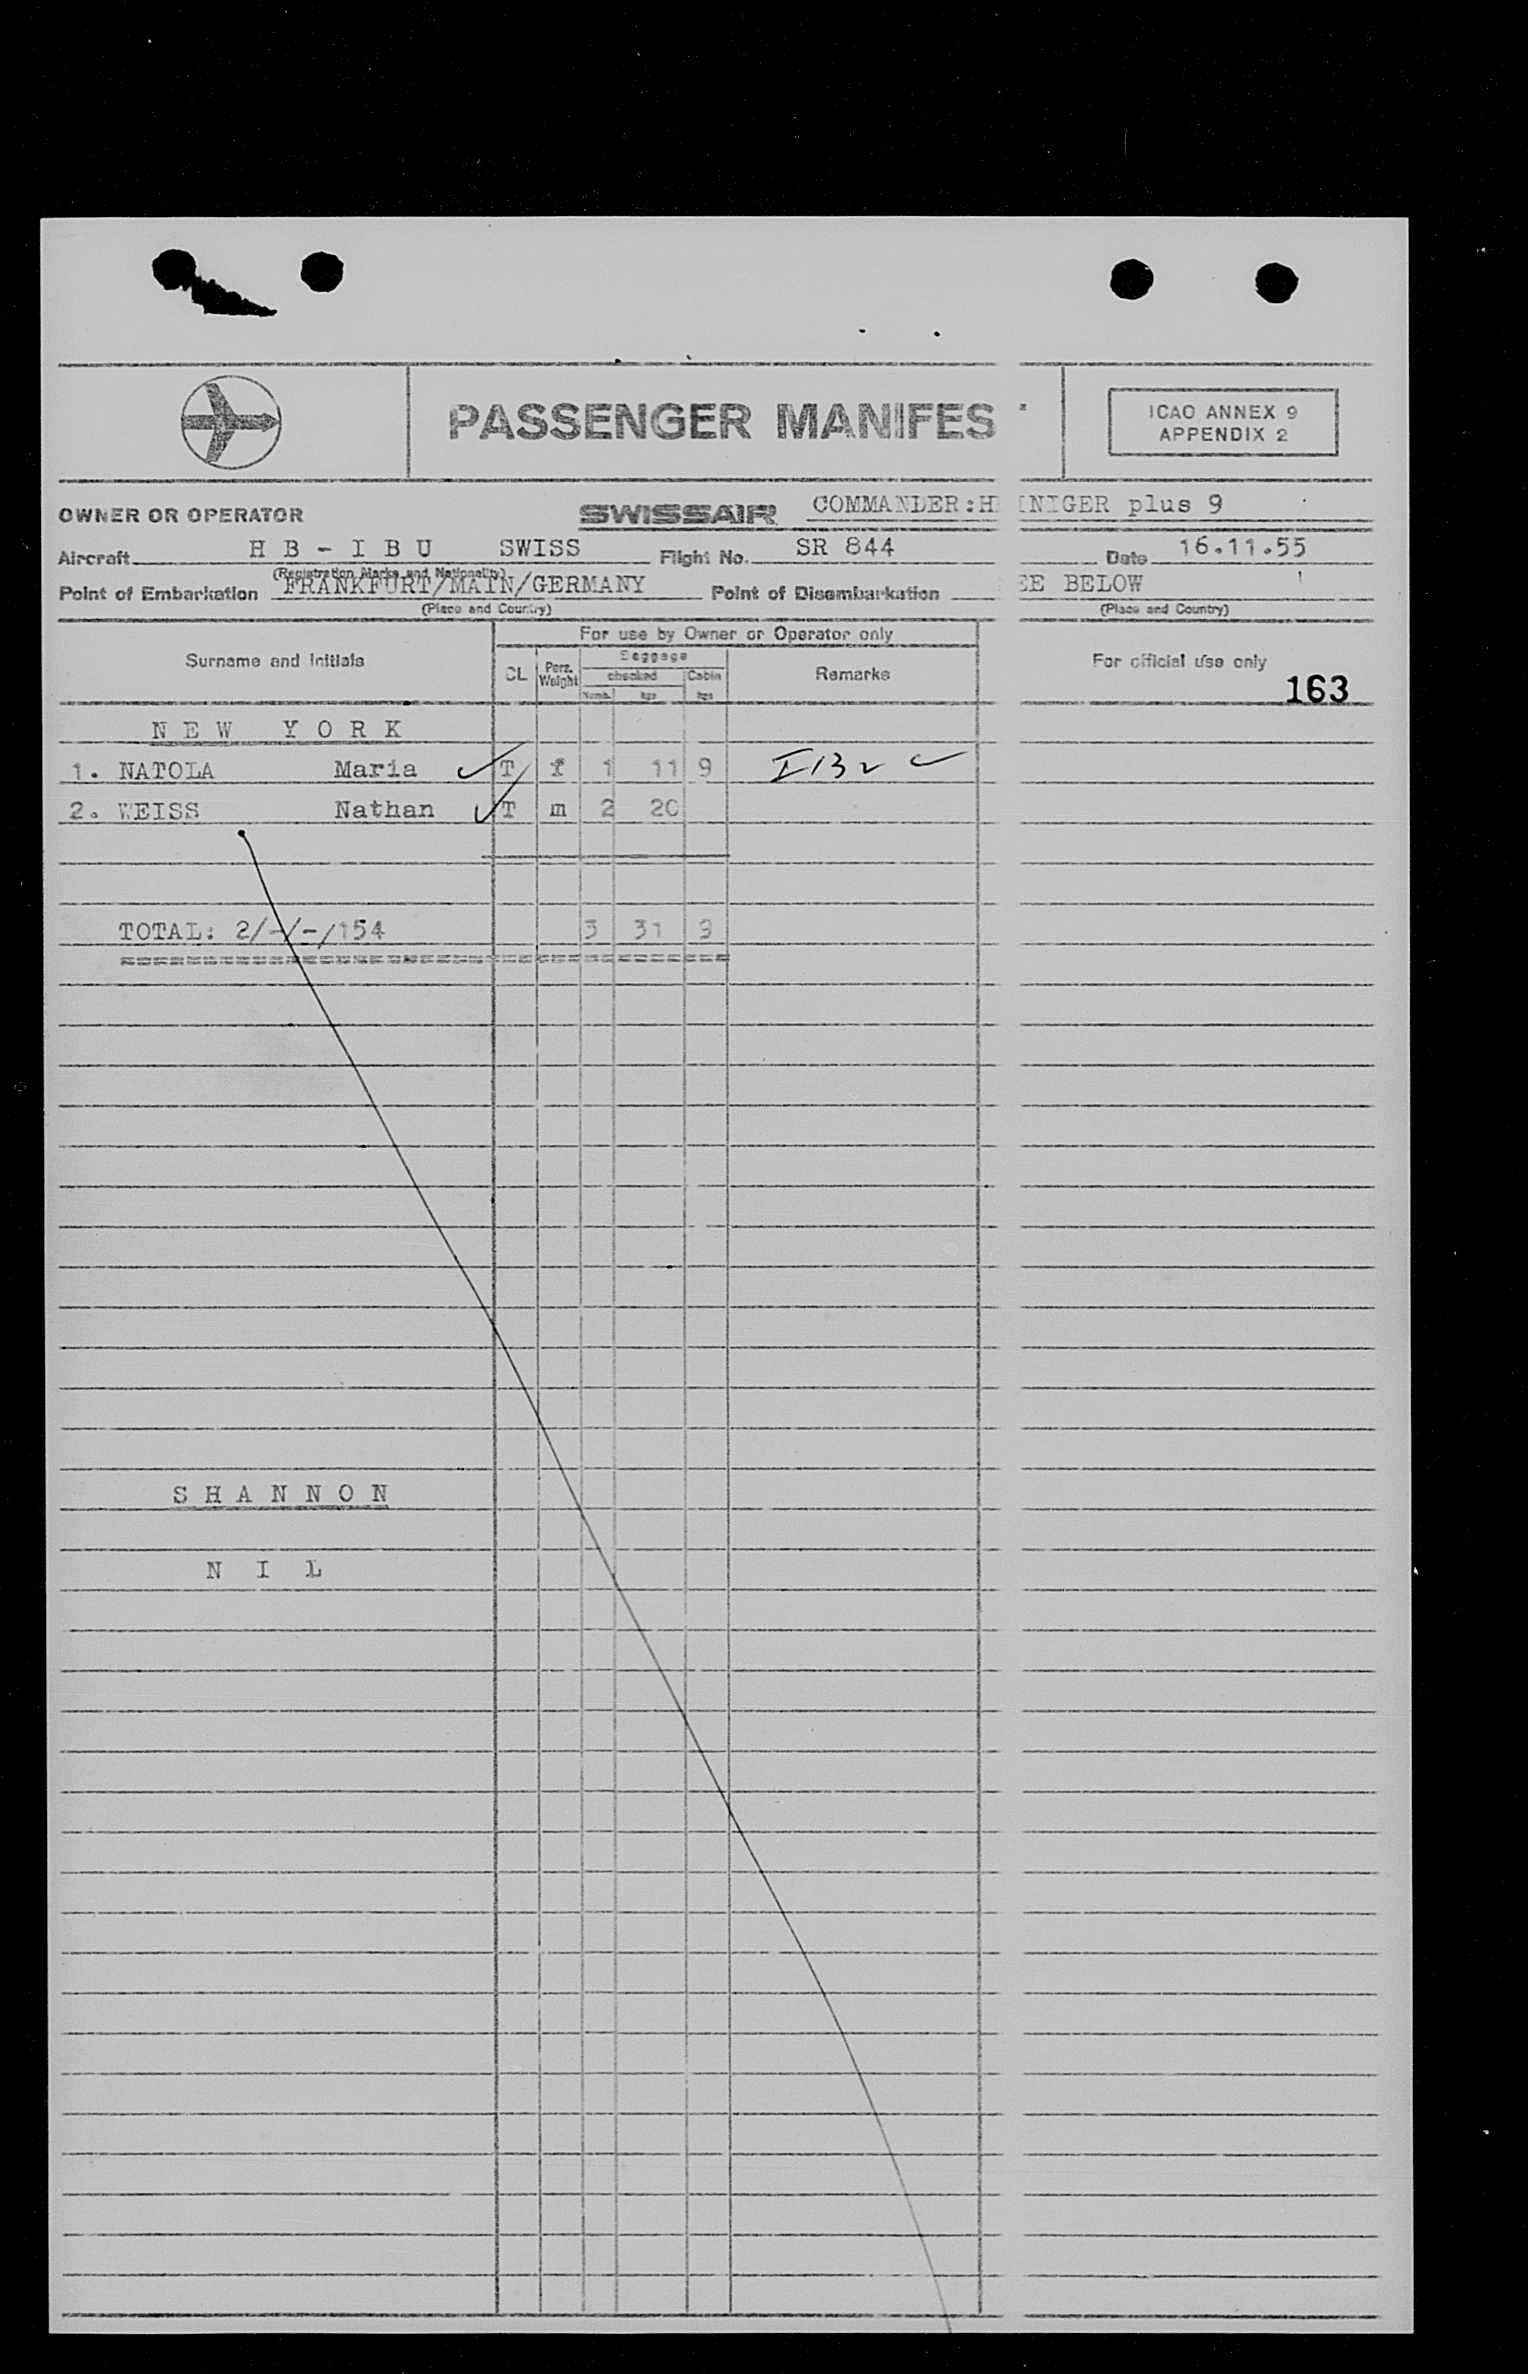 PASSENGER MANIFES
ICAO ANNEX 9
APPENDIX 2
OWNER OR OPERATOR SWISSAIR COMMANDER:H INIGER plus 9
Aircraft H B - I B U SWISS Flight No. SR 844 Date 16.11.55
(Registration Marks and Nationality)
Point of Embarkation FRANKFURT/MAIN/GERMANY Point of Disembarkation EE BELOW
(Place and Country) (Place and Country)
For use by Owner or Operator only
Surname and Initials CL Pers. Weight Baggage checked Numb. kgs Cabin kgs Remarks For official use only
163
N E W Y O R K
1. NATOLA Maria T f 1 11 9
2. WEISS Nathan T m 2 20
TOTAL: 2/-/-/154 3 31 9
S H A N N O N
N I L